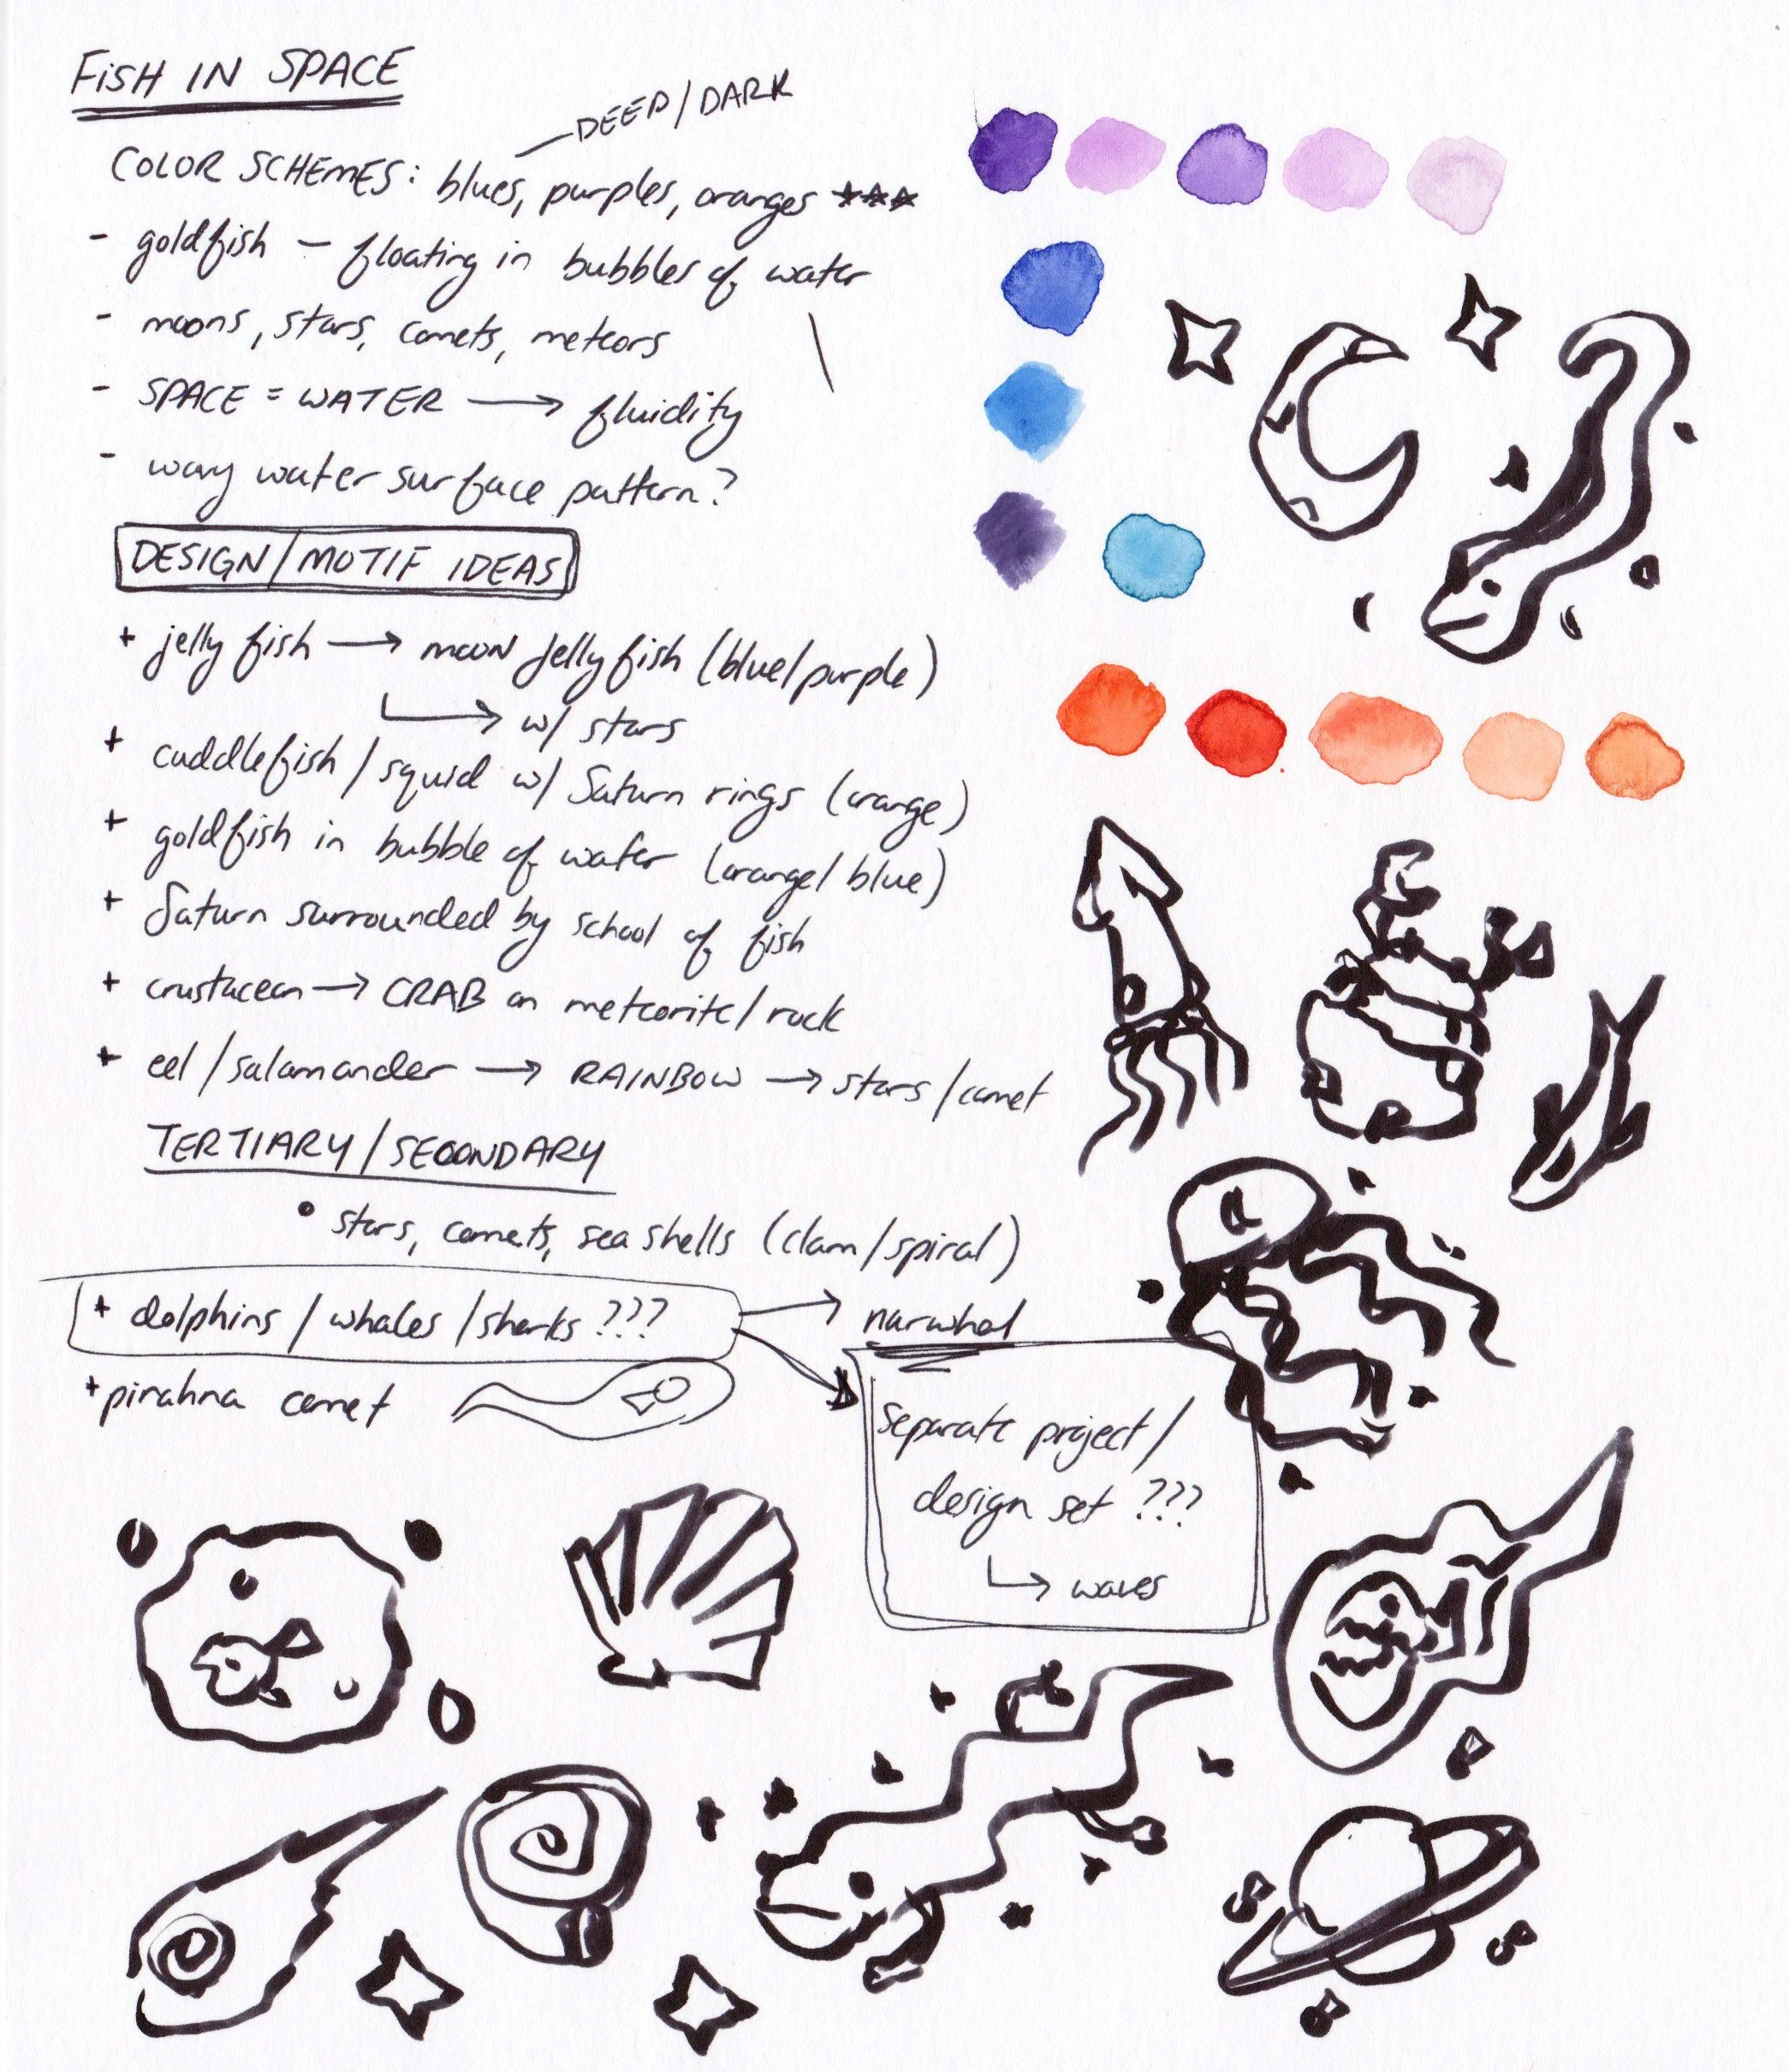 FISH IN SPACE
DEEP/DARK
COLOR SCHEMES: blues, purples, oranges ★★★
- goldfish – floating in bubbles of water
- moons, stars, comets, meteors
- SPACE = WATER → fluidity
- wavy water surface pattern?
DESIGN/MOTIF IDEAS
+ jelly fish → moon jellyfish (blue/purple)
↳ w/ stars
+ cuddlefish / squid w/ Saturn rings (orange)
+ goldfish in bubble of water (orange/blue)
+ Saturn surrounded by school of fish
+ crustacean → CRAB on meteorite/rock
+ eel/salamander → RAINBOW → stars/comet
TERTIARY/SECONDARY
• stars, comets, sea shells (clam/spiral)
+ dolphins / whales / sharks ??? → narwhal
+ pirahna comet
Separate project/
design set ???
↳ waves